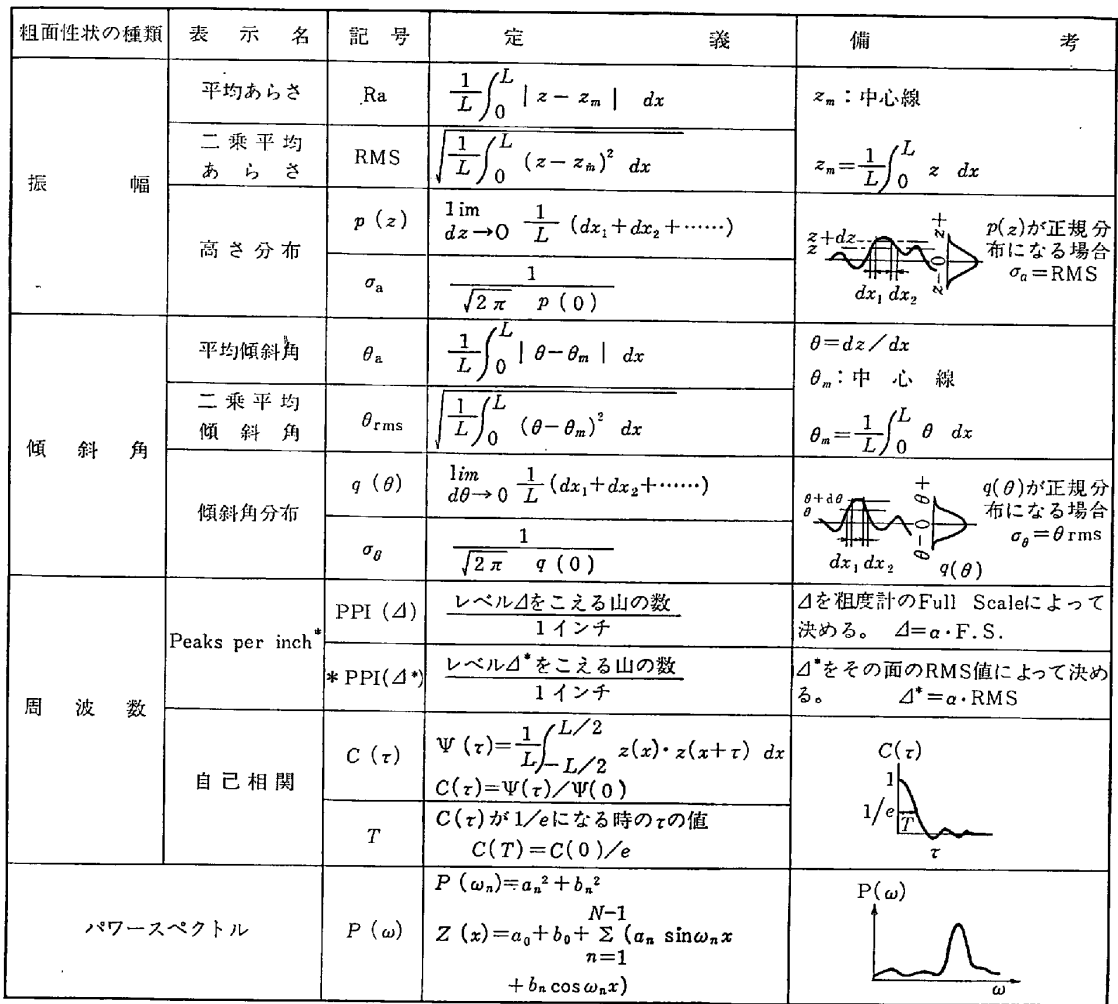 粗面性状の種類 表示名 記号 定義 備考
振幅
平均あらさ Ra \frac{1}{L}\int_0^L | z - z_m | dx
z_m：中心線
二乗平均あらさ RMS \sqrt{\frac{1}{L}\int_0^L (z - z_m)^2 dx}
z_m = \frac{1}{L}\int_0^L z dx
高さ分布
p (z) \lim_{dz→0} \frac{1}{L} (dx_1 + dx_2 + ……)
σ_a \frac{1}{\sqrt{2π} p (0)}
z+dz
z
dx_1 dx_2
z− 0 z+
p(z)が正規分
布になる場合
σ_a = RMS
傾斜角
平均傾斜角 θ_a \frac{1}{L}\int_0^L | θ - θ_m | dx
θ = dz／dx
θ_m：中心線
二乗平均傾斜角 θ_rms \sqrt{\frac{1}{L}\int_0^L (θ - θ_m)^2 dx}
θ_m = \frac{1}{L}\int_0^L θ dx
傾斜角分布
q (θ) \lim_{dθ→0} \frac{1}{L} (dx_1 + dx_2 + ……)
σ_θ \frac{1}{\sqrt{2π} q (0)}
θ+dθ
θ
dx_1 dx_2
θ− 0 θ+
q(θ)
q(θ)が正規分
布になる場合
σ_θ = θ rms
周波数
Peaks per inch*
PPI (Δ) \frac{レベルΔをこえる山の数}{1インチ}
Δを粗度計のFull Scaleによって
決める。 Δ=α·F.S.
* PPI(Δ*) \frac{レベルΔ*をこえる山の数}{1インチ}
Δ*をその面のRMS値によって決め
る。 Δ*=α·RMS
自己相関
C (τ) Ψ (τ) = \frac{1}{L}\int_{-L/2}^{L/2} z(x)·z(x+τ) dx
C(τ)=Ψ(τ)/Ψ(0)
T C(τ)が1/eになる時のτの値
C(T)=C(0)/e
C(τ)
1
1/e
T
τ
パワースペクトル P (ω)
P (ω_n)=a_n^2+b_n^2
Z (x)=a_0+b_0+ \sum_{n=1}^{N-1} (a_n sinω_n x
+b_n cosω_n x)
P(ω)
ω